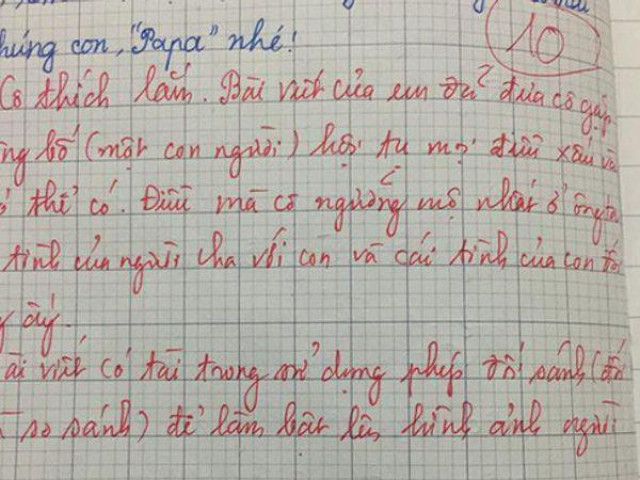 húng con, "Papa" nhé!
10
Cô thích lắm. Bài viết của em đã đưa cô gặp
ng bố (một con người) hội tụ mọi điều xấu và
thể có. Điều mà cô ngưỡng mộ nhất ở ông ta
tình của người cha với con và cái tình của con đối
ấy.
ài viết có tài trong sử dụng phép đối sánh (đối
so sánh) để làm bật lên hình ảnh người